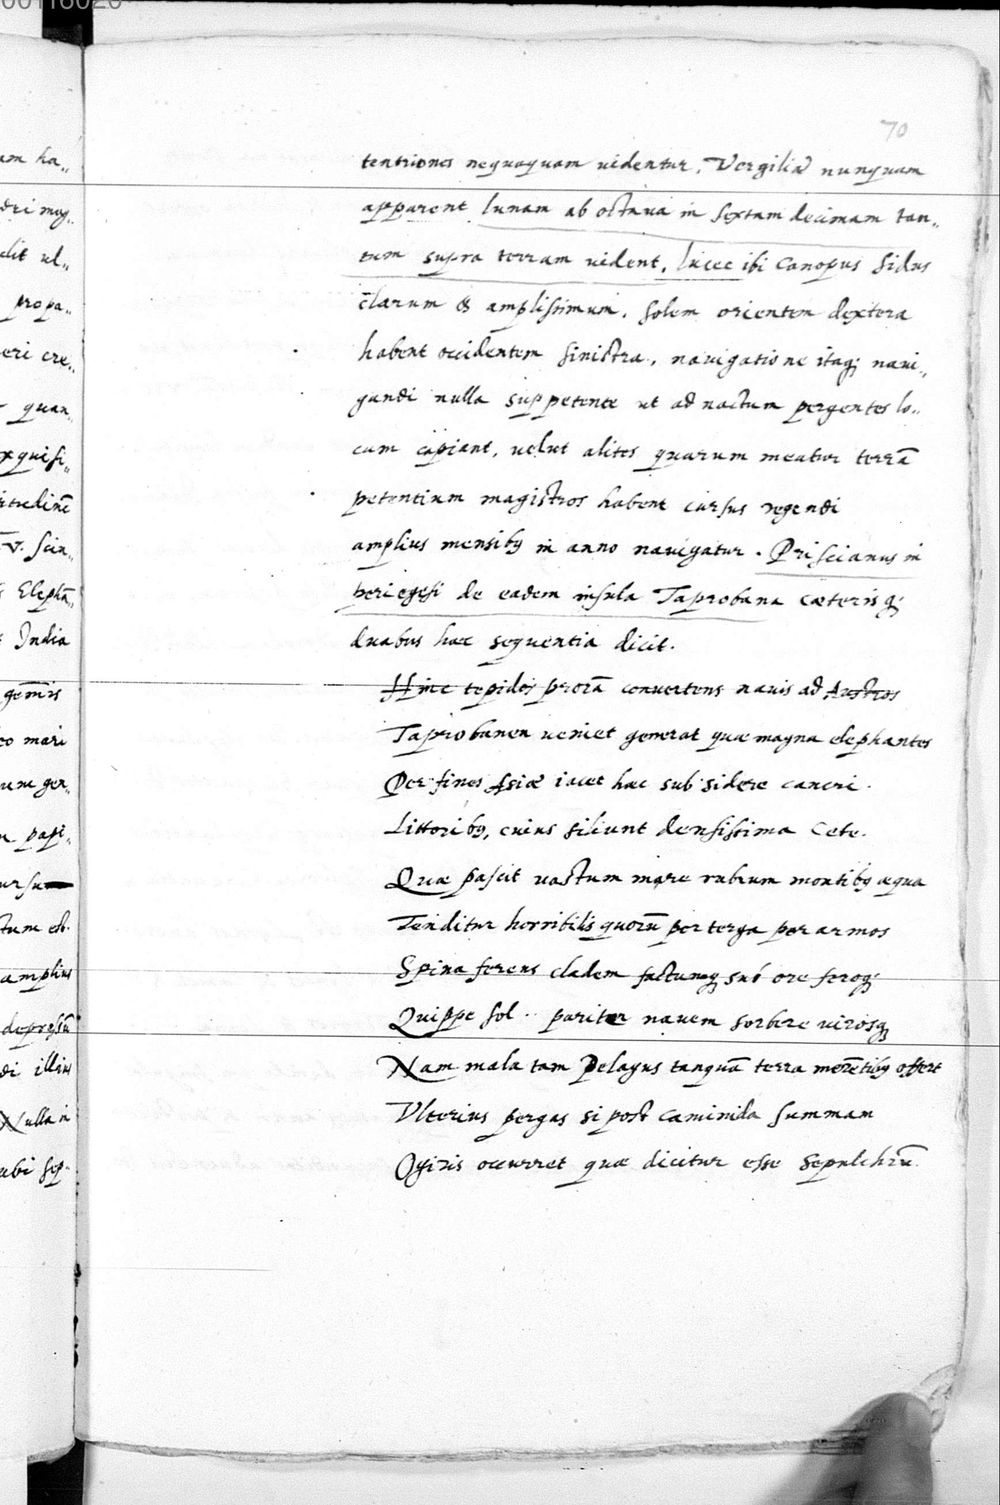 70
tentriones nequaquam uidentur, Vergiliæ nunquam
apparent lunam ab octaua in sextam decimam tan„
tum supra terram uident, lucec ibi Canopus sidus
clarum & amplissimum, solem orientem dextera
habent occidentem sinistra, nauigatione itaq; naui„
gandi nulla suppetente ut ad nactum pergentes lo„
cum capiant, uelut alites quarum meatur terrā
petentium magistros habent cursus regendi
amplius mensibꝰ in anno nauigatur. Priscianus in
periegesi de eadem insula Taprobana cæterisq;
duabus hæc sequentia dicit.
Hinc tepidos prorā convertens nauis ad Austros
Taprobanen ueniet generat quæ magna elephantes
Per fines Asiæ iacet hac sub sidere cancri.
Littoribꝰ, cuius siliunt densissima Cete.
Quæ pascit uastum mare rubrum montibꝰ æqua
Tenditur horribilis quorū per terga per armos
Spina ferens cladem factunq; suó ore feroq;
Quippe sol.. pariter nauem sorbere uirosq;
Nam mala tam Pelagus tanquā terra merētibꝰ offert
Vlterius pergas si post Caminida summam
Ogiris occurret quæ dicitur esse sepulchrū.
am ha„
dit ul„
propa„
eri cre„
quan„
xquisi„
V. Scin„
Elephā„
India
gem̄is
co mari
um ger„
papi„
ursu
tum est.
amplius
depressū
di illius
Nulla in
ubi sep„